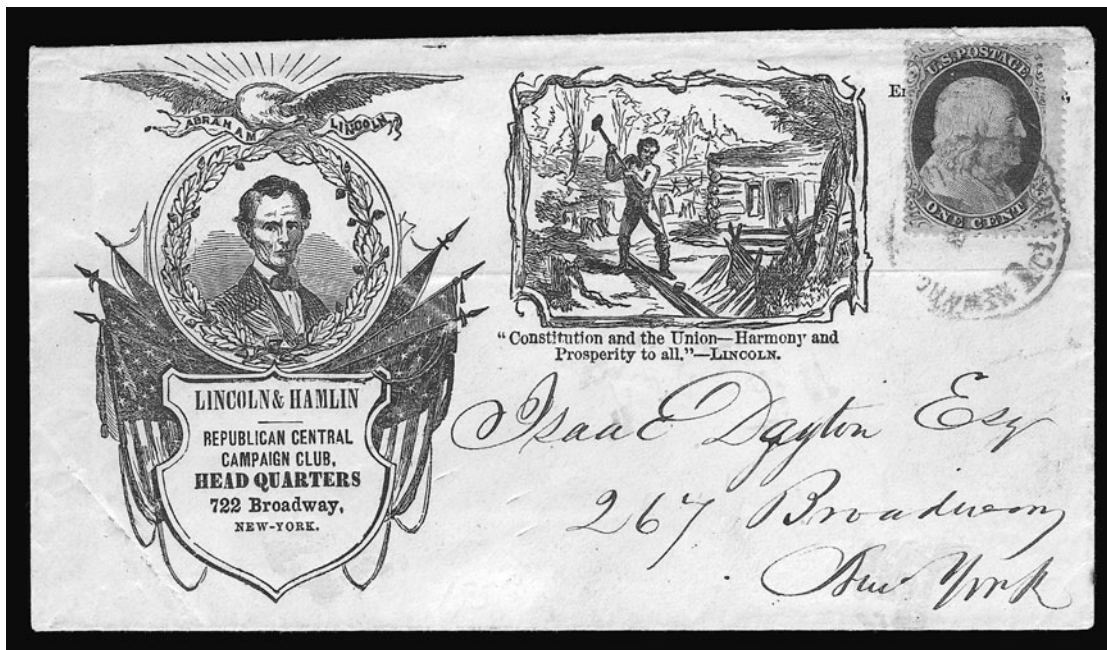 ABRAHAM LINCOLN
LINCOLN & HAMLIN
REPUBLICAN CENTRAL
CAMPAIGN CLUB,
HEAD QUARTERS
722 Broadway,
NEW-YORK.
"Constitution and the Union—Harmony and
Prosperity to all."—LINCOLN.
U.S. POSTAGE
ONE CENT
Isaac Dayton Esq
267 Broadway
New York